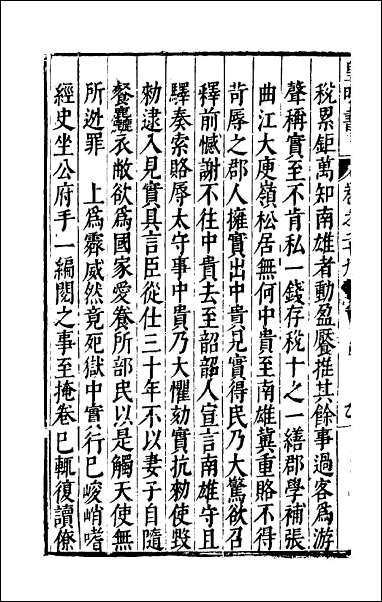 稅累鉅萬知南雄者動盈饜推其餘事過客爲游
聲稱實至不肯私一錢存稅十之一繕郡學補張
曲江大庾嶺松居無何中貴至南雄冀重賂不得
苛辱之郡人擁實出中貴見實得民乃大驚欲召
釋前憾謝不往中貴去至韶韶人宣言南雄守且
驛奏索賂辱太守事中貴乃大懼劾實抗勅使毀
勅逮入見實具言臣從仕三十年不以妻子自隨
餐麤衣敝欲爲國家愛養所部民以是觸天使無
所逃罪　上爲霽威然竟死獄中實行已峻峭嗜
經史坐公府手一編閱之事至掩卷已輒復讀僚